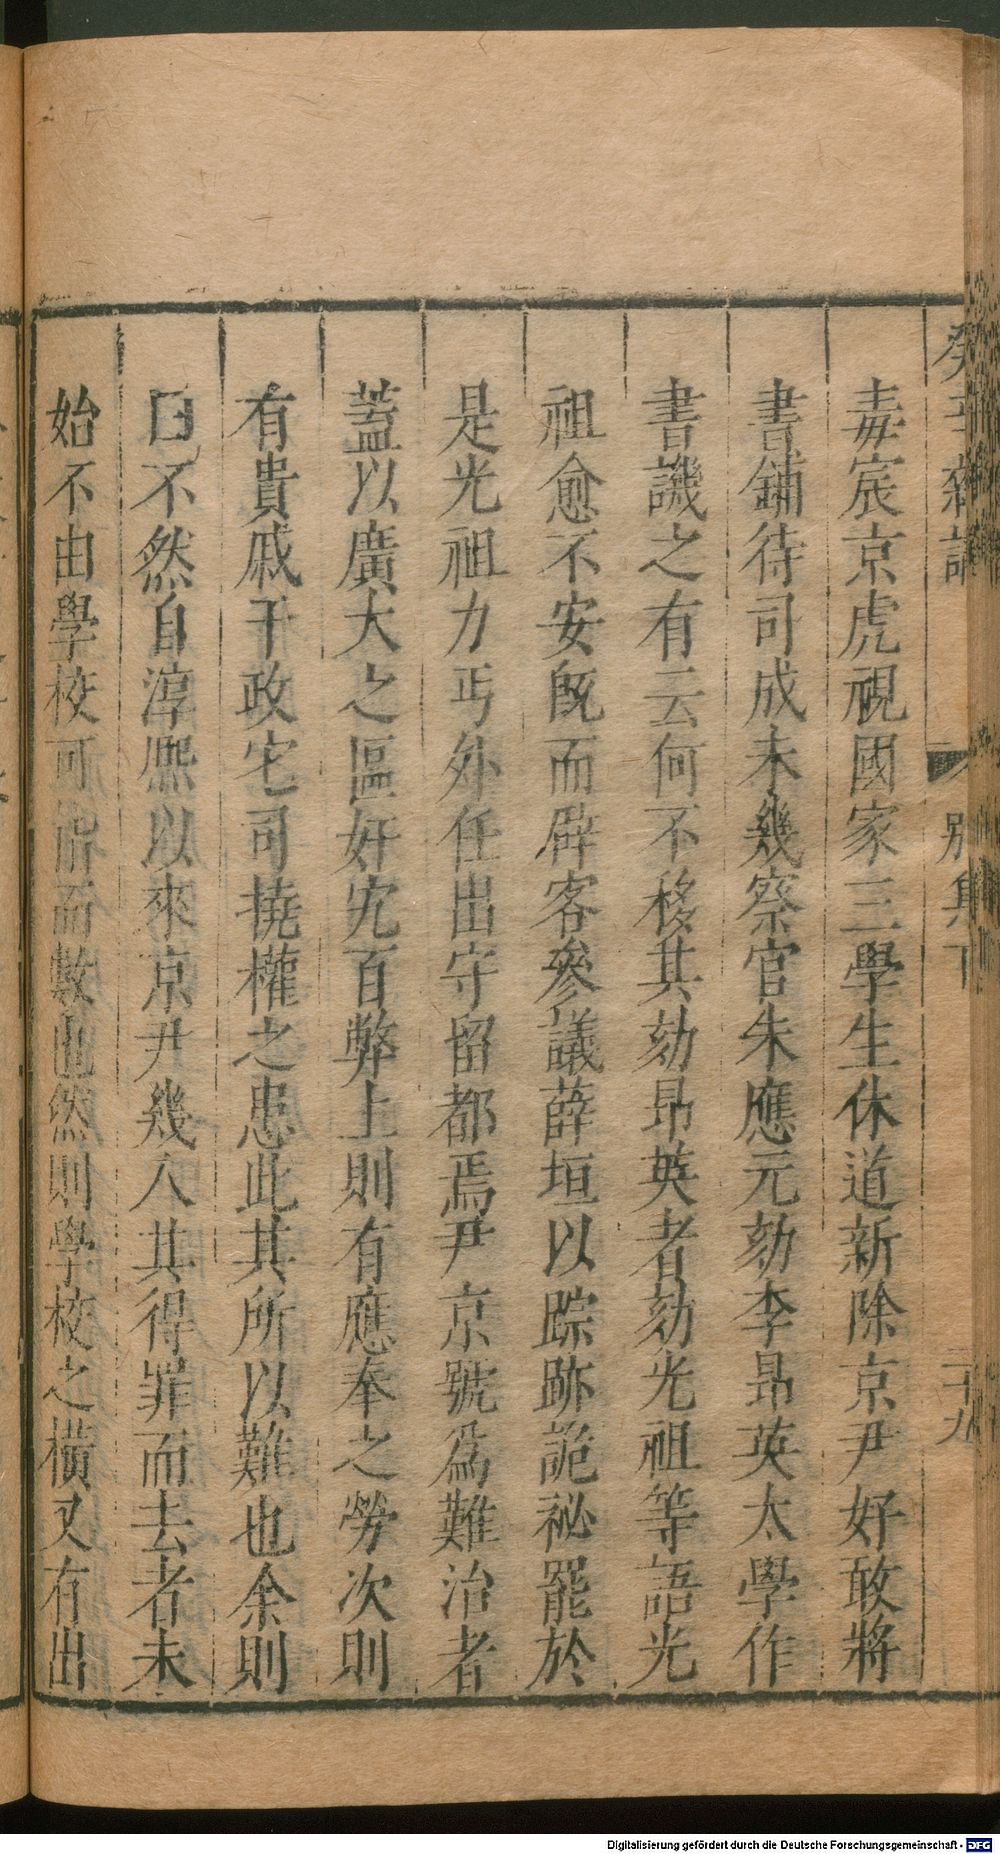 癸辛雜識
別集下
二十九
毒宸京虎視國家三學生休道新除京尹好敢將
書鋪待司成未幾察官朱應元劾李昴英太學作
書譏之有云何不移其劾昴英者劾光祖等語光
祖愈不安旣而辟客參議薛垣以踪跡詭祕罷於
是光祖力丐外任出守留都焉尹京號爲難治者
蓋以廣大之區奸宄百弊上則有應奉之勞次則
有貴戚干政宅司撓權之患此其所以難也余則
曰不然自淳熈以來京尹幾人其得罪而去者未
始不由學校可指而數也然則學校之橫又有出
Digitalisierung gefördert durch die Deutsche Forschungsgemeinschaft - DFG